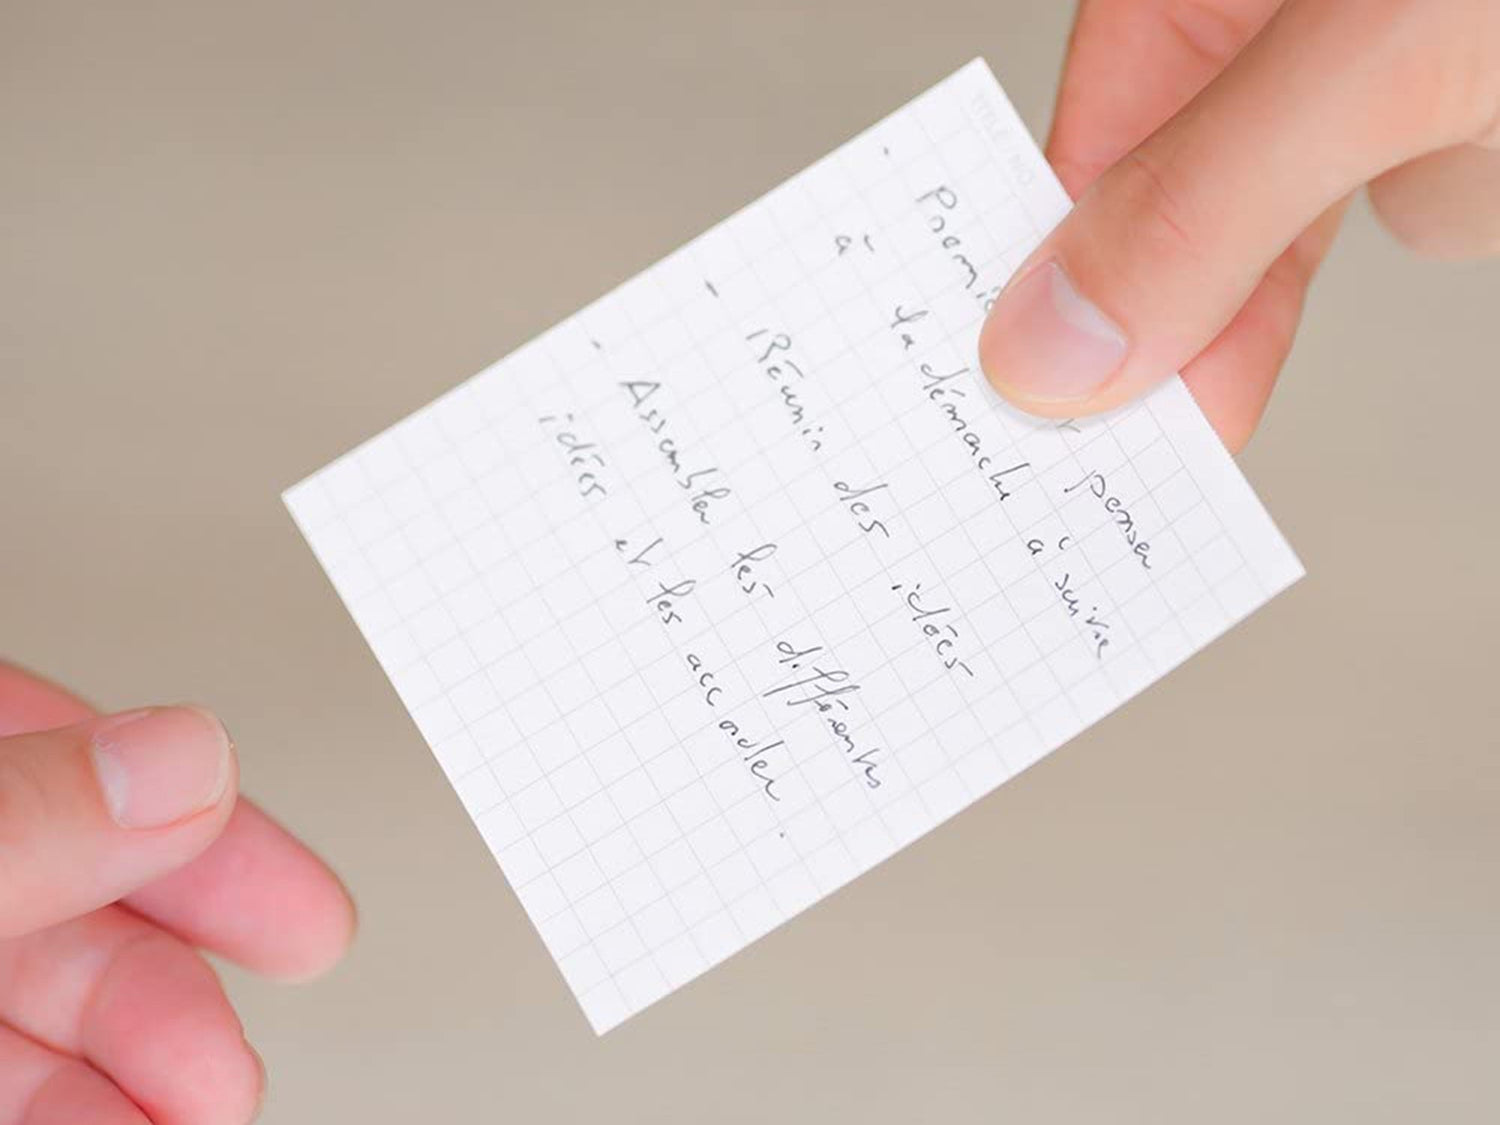 - Premi penser
à la démarche à suivre
- Réunir des idées
- Assembler les différentes
idées et les accorder.